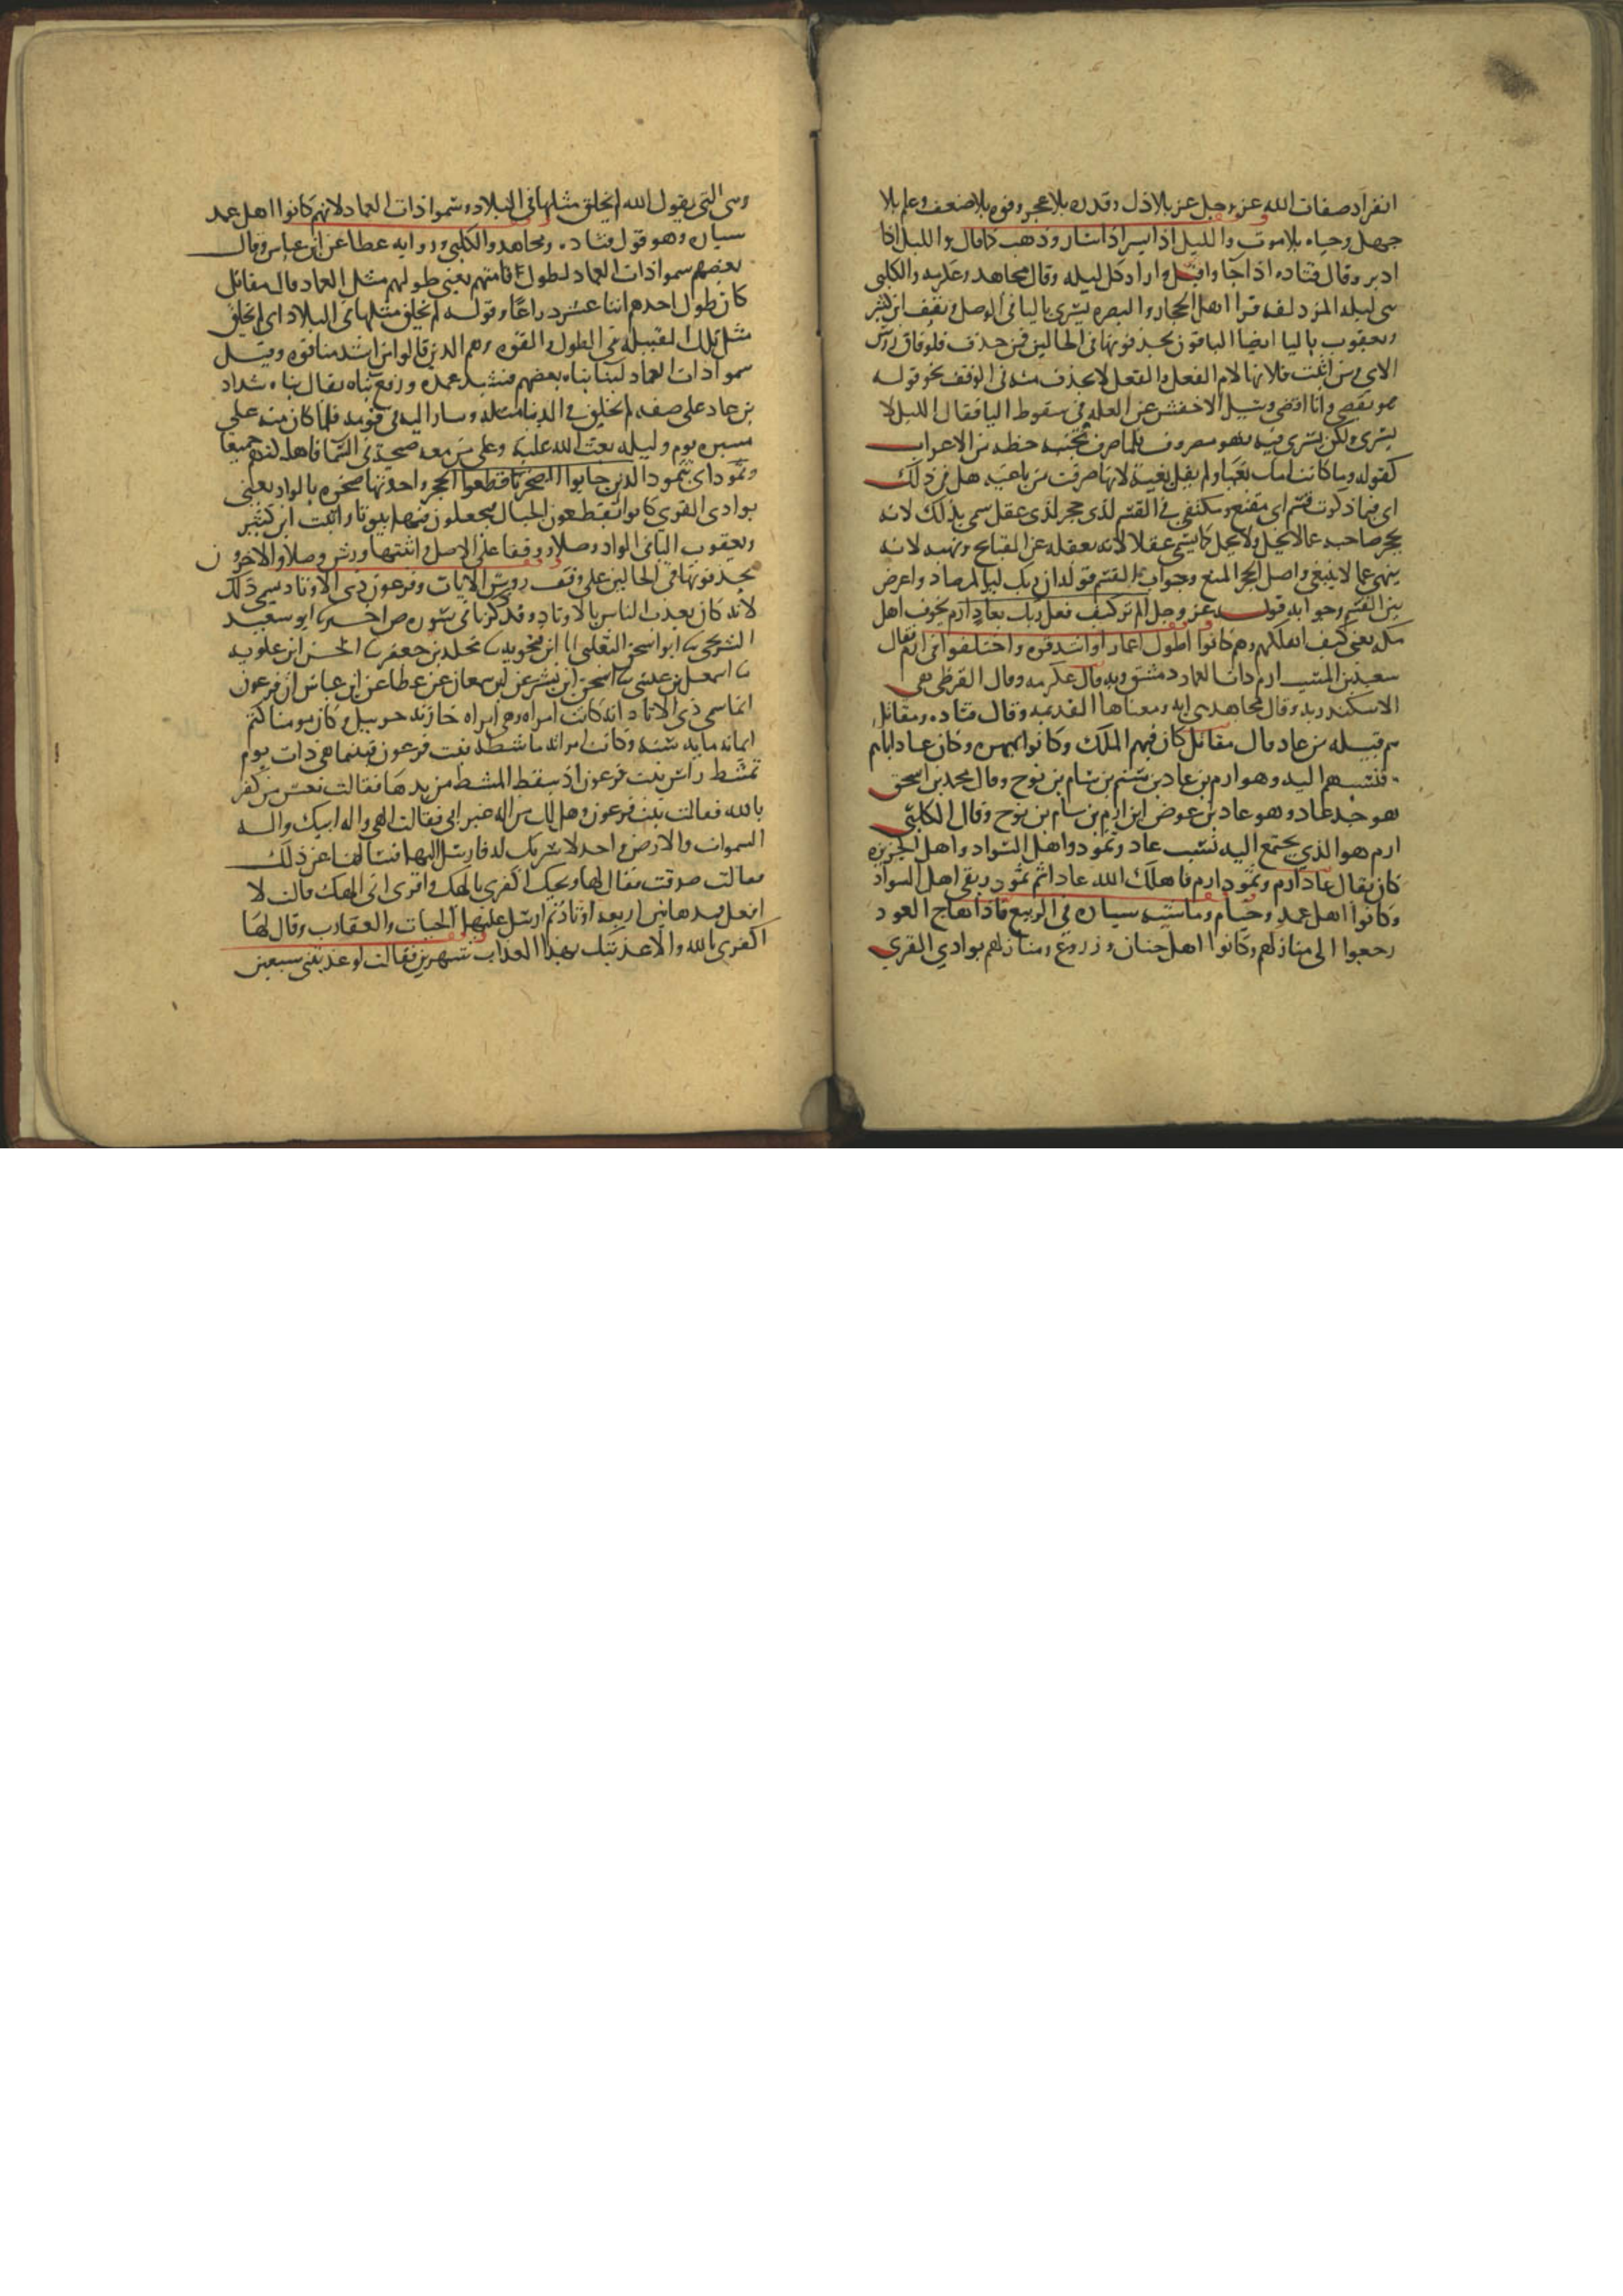 انفراد صفات الله عز وجل عز بلا ذل وقدره بلا عجز وقوه بلا ضعف وعلم بلا
جهل وحياه بلا موت والليل اذا يسر اذا سار وذهب كما قال والليل اذا
ادبر وقال قتاده اذا جا واقبل واراد كل ليله وقال مجاهد وعكرمه والكلبي
هي ليله المزدلفه قرا اهل الحجاز والبصره يسري باليا في الوصل ويقف ابن كثير
ويعقوب باليا ايضا الباقون يحذفونها في الحالين فمن حذف فلوفاق روس
الاي ومن اثبت فلانها لام الفعل والفعل لا يحذف منه في الوقف نحو قوله
هو يقضي وانا اقضي وسيل الاخفش عن العله في سقوط اليا فقال الليل لا
يسري ولكن يسري فيه فهو مصروف فلما صرف بخسه حظه من الاعراب
كقوله وما كانت امك بغيا ولم يقل بغية لانها صرفت من باغيه هل في ذلك
اي فيما ذكرت قسم اي مقنع ومكتفي في القسم لذي حجر لذي عقل سمي بذلك لانه
يحجر صاحبه عما لا يحل ولا يجمل كما يسمي عقلا لانه يعقله عن القبايح ونهيه لانه
ينهي عما لا ينبغي واصل الحجر المنع وجواب القسم قوله ان ربك لبالمرصاد واعرض
بين القسم وجوابه قوله عز وجل الم تر كيف فعل ربك بعاد ارم يخوف اهل
مكه يعني كيف اهلكهم وهم كانوا اطول اعمارا واشد قوه واختلفوا في ارم فقال
سعيد بن المسيب ارم ذات العماد دمشق وبه قال عكرمه وقال القرظي هي
الاسكندريه وقال مجاهد هي امه ومعناها القديمه وقال قتاده ومقاتل
هم قبيله من عاد قال مقاتل كان فيهم الملك وكانوا بمهره وكان عاد اباهم
فنسبهم اليه وهو ارم بن عاد بن شيم بن سام بن نوح وقال محمد بن اسحق
هو جد عاد وهو عاد بن عوض ابن ارم بن سام بن نوح وقال الكلبي
ارم هو الذي يجتمع اليه نسب عاد وثمود واهل السواد واهل الجزيره
كان يقال عاد ارم وثمود ارم فاهلك الله عادا ثم ثمود وبقي اهل السواد
وكانوا اهل عمد وخيام وماشيه سياره في الربيع فاذا هاج العود
رجعوا الي منازلهم وكانوا اهل جنان وزروع ومنازلهم بوادي القري
وهي التي يقول الله لم يخلق مثلها في البلاد وسموا ذات العماد لانهم كانوا اهل عمد
سياره وهو قول قتاده ومجاهد والكلبي وروايه عطا عن ابن عباس وقال
بعضهم سموا ذات العماد لطول قامتهم يعني طولهم مثل العماد قال مقاتل
كان طول احدهم اثنا عشر ذراعا وقوله لم يخلق مثلها في البلاد اي لم يخلق
مثل تلك القبيله في الطول والقوه وهم الذين قالوا من اشد منا قوه وقيل
سموا ذات العماد لبنا بناه بعضهم فشيد عمده ورفع بناه يقال بناه شداد
بن عاد علي صفه لم يخلق في الدنيا مثله وسار اليه في قومه فلما كان منه علي
مسيره يوم وليله بعث الله عليه وعلي من معه صيحه من السما فاهلكتهم جميعا
وثمود اي بثمود الذين جابوا الصخر قطعوا الحجر واحدتها صخره بالواد يعني
بوادي القري كانوا يقطعون الجبال فيجعلون فيها بيوتا واثبت ابن كثير
ويعقوب اليا في الواد وصلا ووقفا علي الاصل واثبتها ورش وصلا والاخرون
يحذفونها في الحالين علي وفق روس الايات وفرعون ذي الاوتاد سمي ذلك
لانه كان يعذب الناس بالاوتاد وقد ذكرنا في سوره ص اخبرنا ابو سعيد
الشريحي انا ابو اسحق الثعلبي انا ابن فنجويه نا مخلد بن جعفر نا الحسن ابن علويه
نا اسمعيل بن عيسي نا اسحق ابن بشر عن ابن سمعان عن عطا عن ابن عباس ان فرعون
انما سمي ذي الاوتاد انه كانت امراه وهي امراه خازنه حزبيل وكان مومنا كتم
ايمانه مايه سنه وكانت امراته ماشطه بنت فرعون فبينما هي ذات يوم
تمشط راس بنت فرعون اذ سقط المشط من يدها فقالت تعس من كفر
بالله فقالت بنت فرعون وهل لك من اله غير ابي فقالت الهي واله ابيك واله
السموات والارض واحد لا شريك له فارسل اليها فسالها عن ذلك
فقالت صدقت فقال لها ويحك اكفري بالهك واقري اني الهك قالت لا
افعل فمدها بين اربعه اوتاد ثم ارسل عليها الحيات والعقارب وقال لها
اكفري بالله والا عذبتك بهذا العذاب شهرين فقالت لو عذبتني سبعين